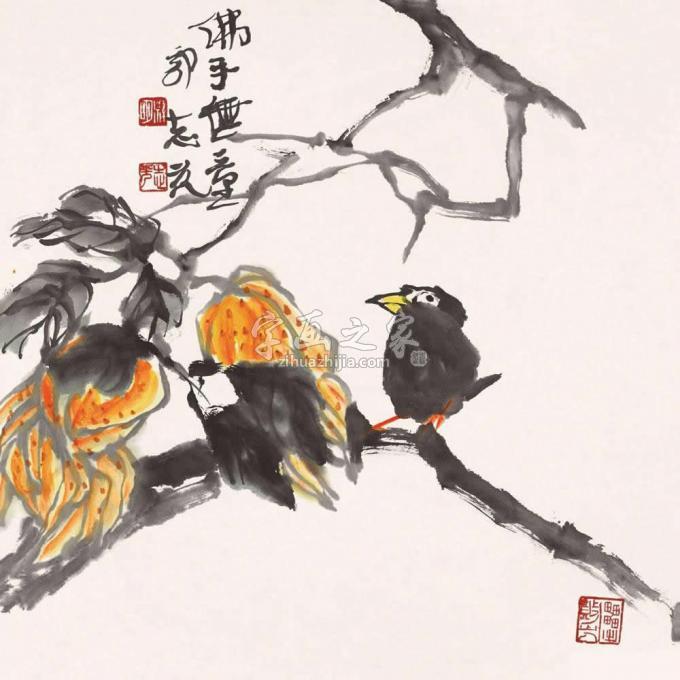 佛手無量
郭志光
字画之家
zihuazhijia.com